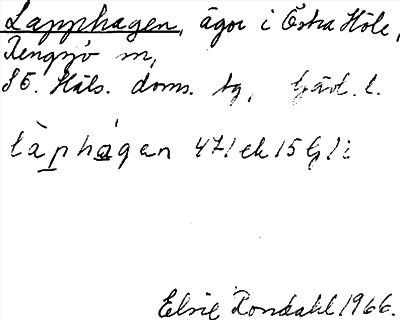 Lapphagen, ägor i Östra Höle,
Rengsjö sn,
SÖ. Häls. doms. tg, Gävl. l.
làphágen 471 ek 15 G
Elsie Rondahl 1966.